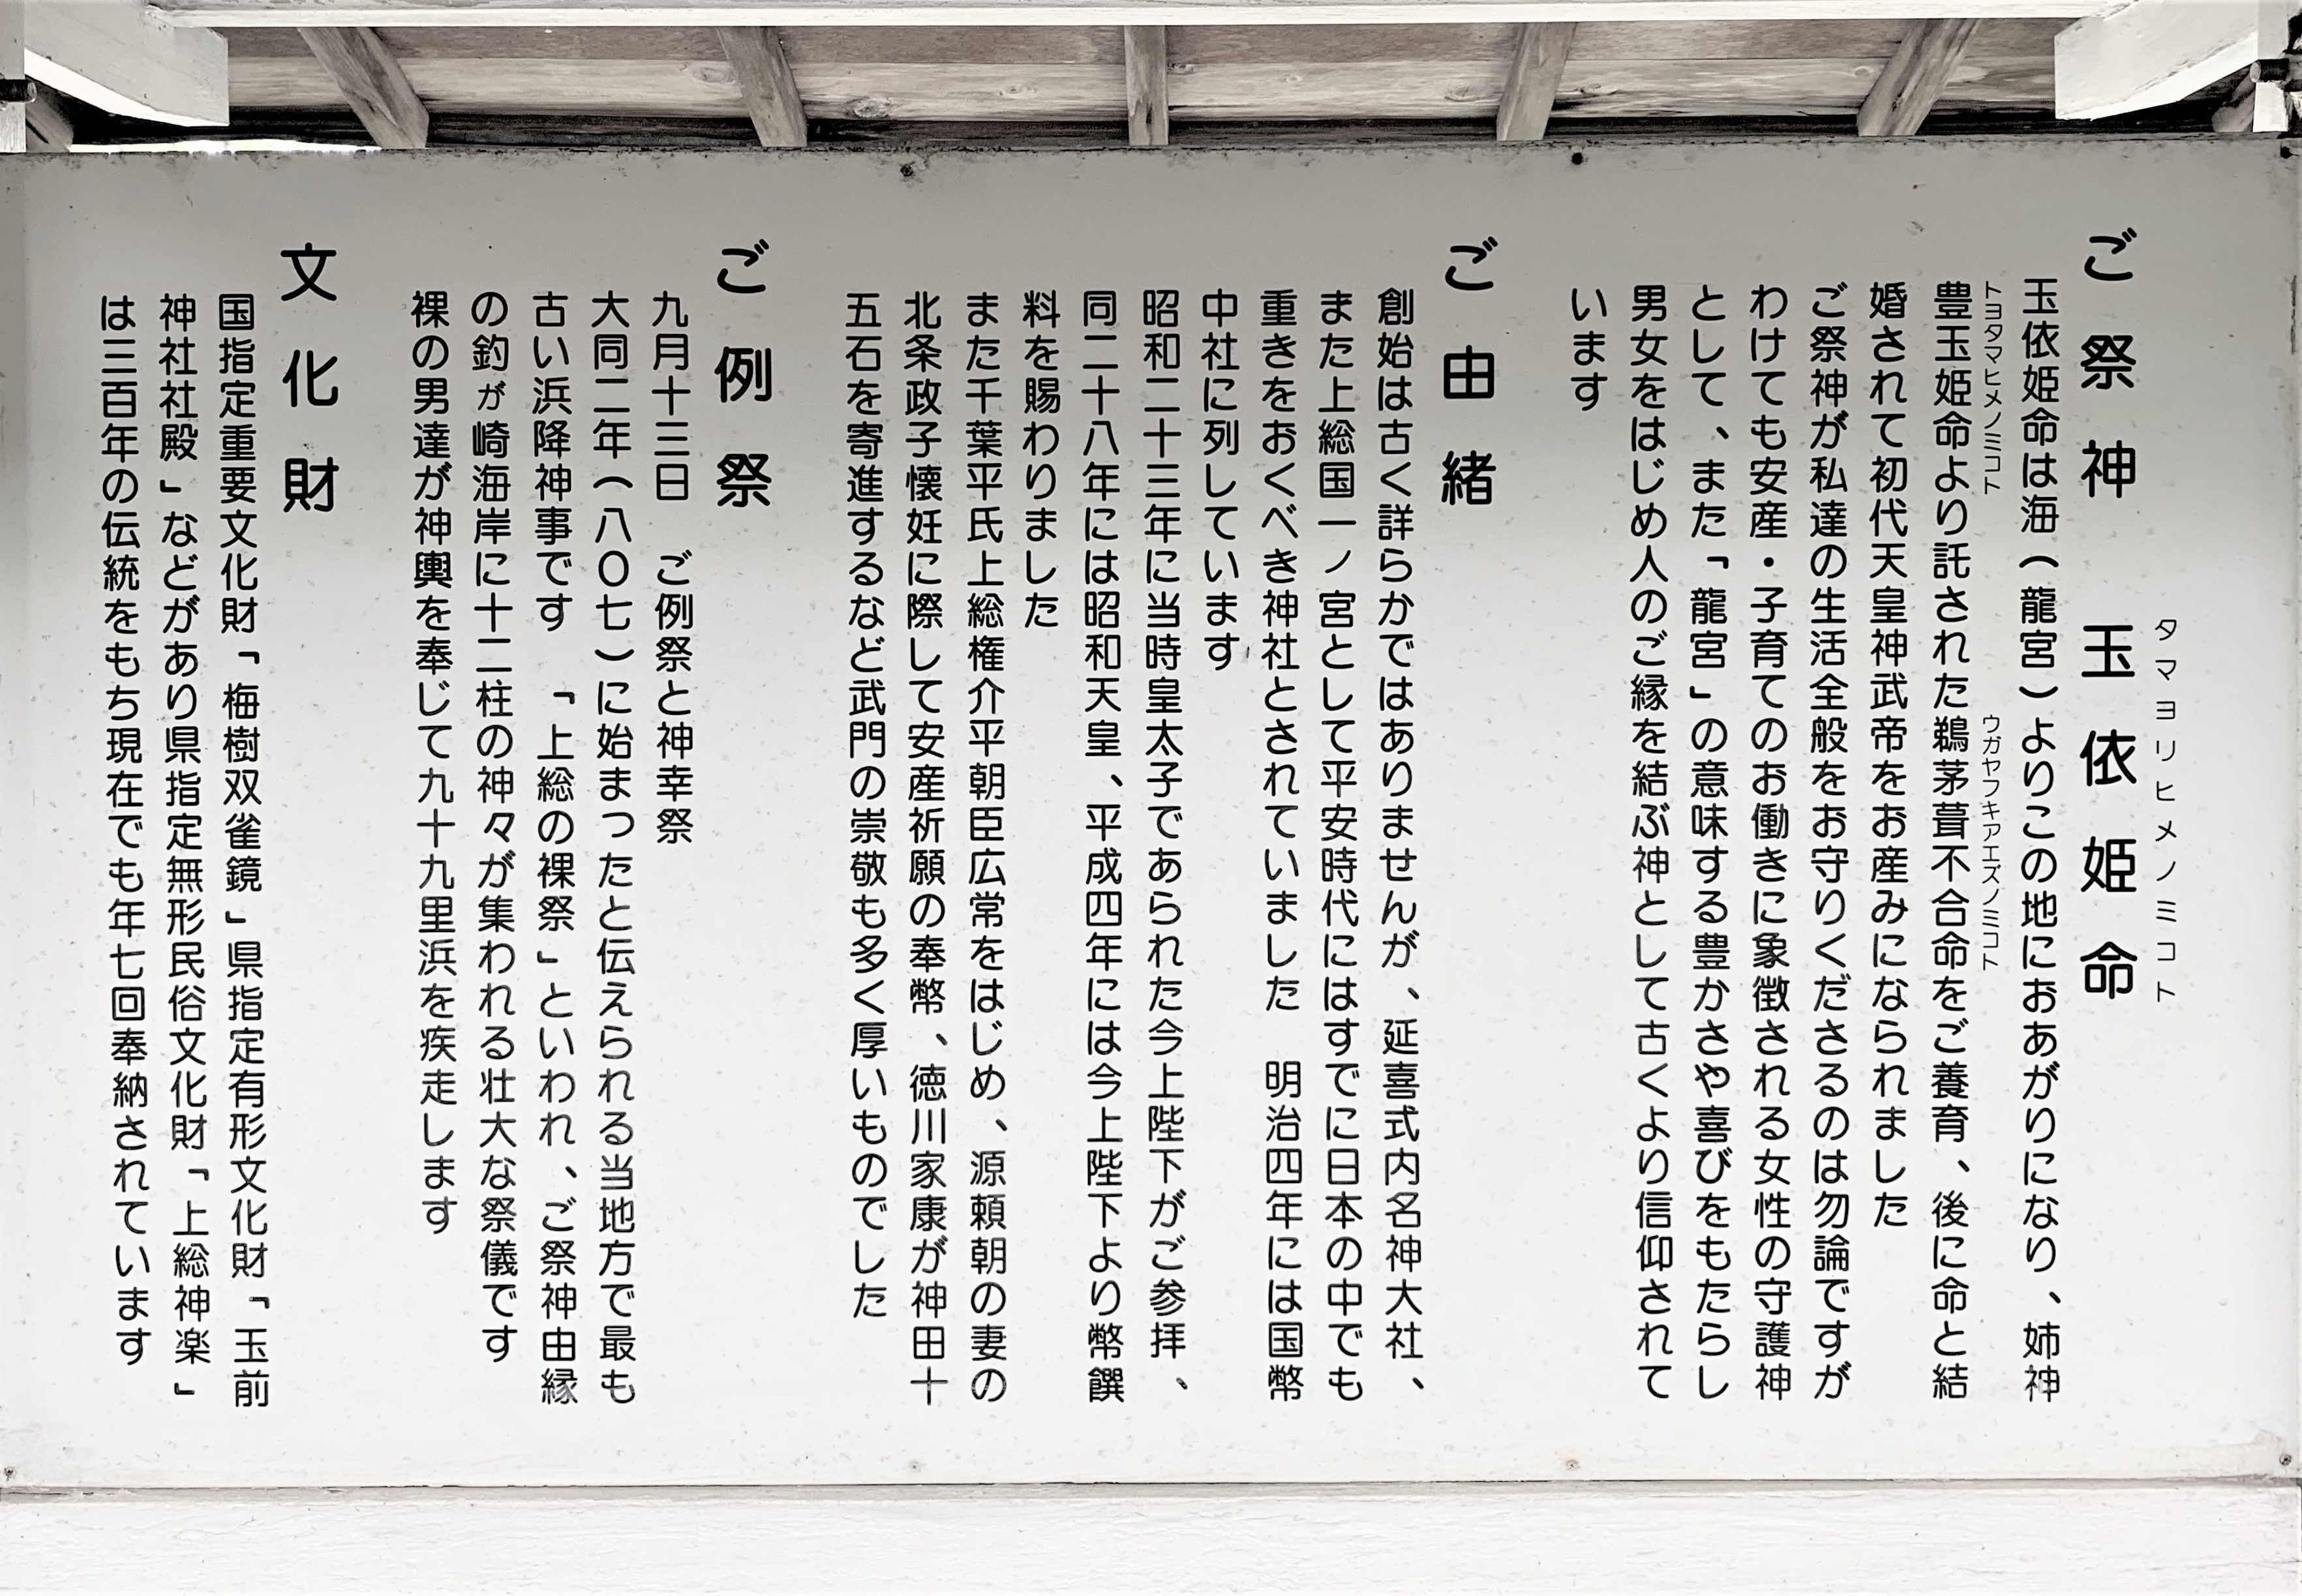 ご祭神 玉依姫命
タマヨリヒメノミコト
玉依姫命は海(龍宮)よりこの地におあがりになり、姉神
トヨタマヒメノミコト ウガヤフキアエズノミコト
豊玉姫命より託された鵜茅葺不合命をご養育、後に命と結
婚されて初代天皇神武帝をお産みになられました
ご祭神が私達の生活全般をお守りくださるのは勿論ですが
わけても安産・子育てのお働きに象徴される女性の守護神
として、また「龍宮」の意味する豊かさや喜びをもたらし
男女をはじめ人のご縁を結ぶ神として古くより信仰されて
います
ご由緒
創始は古く詳らかではありませんが、延喜式内名神大社、
また上総国一ノ宮として平安時代にはすでに日本の中でも
重きをおくべき神社とされていました 明治四年には国幣
中社に列しています
昭和二十三年に当時皇太子であられた今上陛下がご参拝、
同二十八年には昭和天皇、平成四年には今上陛下より幣饌
料を賜わりました
また千葉平氏上総権介平朝臣広常をはじめ、源頼朝の妻の
北条政子懐妊に際して安産祈願の奉幣、徳川家康が神田十
五石を寄進するなど武門の崇敬も多く厚いものでした
ご例祭
九月十三日 ご例祭と神幸祭
大同二年(八〇七)に始まったと伝えられる当地方で最も
古い浜降神事です 「上総の裸祭」といわれ、ご祭神由縁
の釣が崎海岸に十二柱の神々が集われる壮大な祭儀です
裸の男達が神輿を奉じて九十九里浜を疾走します
文化財
国指定重要文化財「梅樹双雀鏡」県指定有形文化財「玉前
神社社殿」などがあり県指定無形民俗文化財「上総神楽」
は三百年の伝統をもち現在でも年七回奉納されています